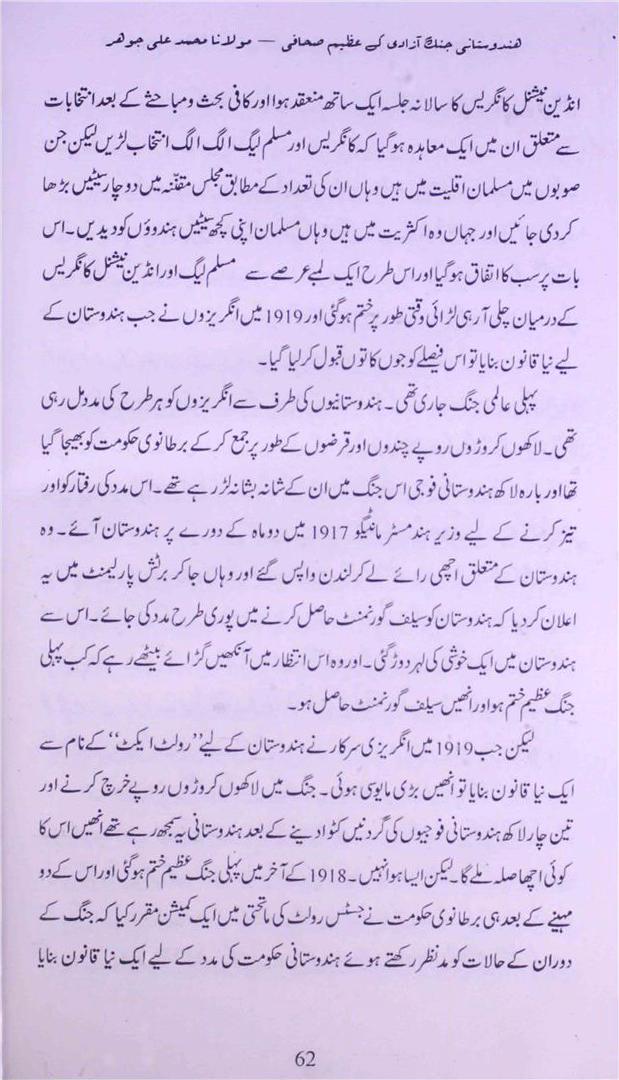 ہندوستانی جنگ آزادی کے عظیم صحافی — مولانا محمد علی جوہر
انڈین نیشنل کانگریس کا سالانہ جلسہ ایک ساتھ منعقد ہوا اور کافی بحث و مباحثے کے بعد انتخابات
سے متعلق ان میں ایک معاہدہ ہوگیا کہ کانگریس اور مسلم لیگ الگ الگ انتخاب لڑیں لیکن جن
صوبوں میں مسلمان اقلیت میں ہیں وہاں ان کی تعداد کے مطابق مجلس مقنّنہ میں دوچار سیٹیں بڑھا
کر دی جائیں اور جہاں وہ اکثریت میں ہیں وہاں مسلمان اپنی کچھ سیٹیں ہندوؤں کو دیدیں۔ اس
بات پر سب کا اتفاق ہوگیا اور اس طرح ایک لمبے عرصے سے مسلم لیگ اور انڈین نیشنل کانگریس
کے درمیان چلی آرہی لڑائی وقتی طور پر ختم ہوگئی اور 1919 میں انگریزوں نے جب ہندوستان کے
لیے نیا قانون بنایا تو اس فیصلے کو جوں کا توں قبول کرلیا گیا۔
پہلی عالمی جنگ جاری تھی۔ ہندوستانیوں کی طرف سے انگریزوں کو ہر طرح کی مدد مل رہی
تھی۔ لاکھوں کروڑوں روپے چندوں اور قرضوں کے طور پر جمع کرکے برطانوی حکومت کو بھیجا گیا
تھا اور بارہ لاکھ ہندوستانی فوجی اس جنگ میں ان کے شانہ بشانہ لڑ رہے تھے۔ اس مدد کی رفتار کو اور
تیز کرنے کے لیے وزیر ہند مسٹر مانٹیگو 1917 میں دوماہ کے دورے پر ہندوستان آئے۔ وہ
ہندوستان کے متعلق اچھی رائے لے کر لندن واپس گئے اور وہاں جاکر برٹش پارلیمنٹ میں یہ
اعلان کردیا کہ ہندوستان کو سیلف گورنمنٹ حاصل کرنے میں پوری طرح مدد کی جائے۔ اس سے
ہندوستان میں ایک خوشی کی لہر دوڑ گئی۔ اور وہ اس انتظار میں آنکھیں گڑائے بیٹھے رہے کہ کب پہلی
جنگ عظیم ختم ہو اور انھیں سیلف گورنمنٹ حاصل ہو۔
لیکن جب 1919 میں انگریزی سرکار نے ہندوستان کے لیے ”رولٹ ایکٹ“ کے نام سے
ایک نیا قانون بنایا تو انھیں بڑی مایوسی ہوئی۔ جنگ میں لاکھوں کروڑوں روپے خرچ کرنے اور
تین چار لاکھ ہندوستانی فوجیوں کی گردنیں کٹوا دینے کے بعد ہندوستانی یہ سمجھ رہے تھے انھیں اس کا
کوئی اچھا صلہ ملے گا۔ لیکن ایسا ہوا نہیں۔ 1918 کے آخر میں پہلی جنگ عظیم ختم ہوگئی اور اس کے دو
مہینے کے بعد ہی برطانوی حکومت نے جسٹس رولٹ کی ماتحتی میں ایک کمیشن مقرر کیا کہ جنگ کے
دوران کے حالات کو مدنظر رکھتے ہوئے ہندوستانی حکومت کی مدد کے لیے ایک نیا قانون بنایا
62